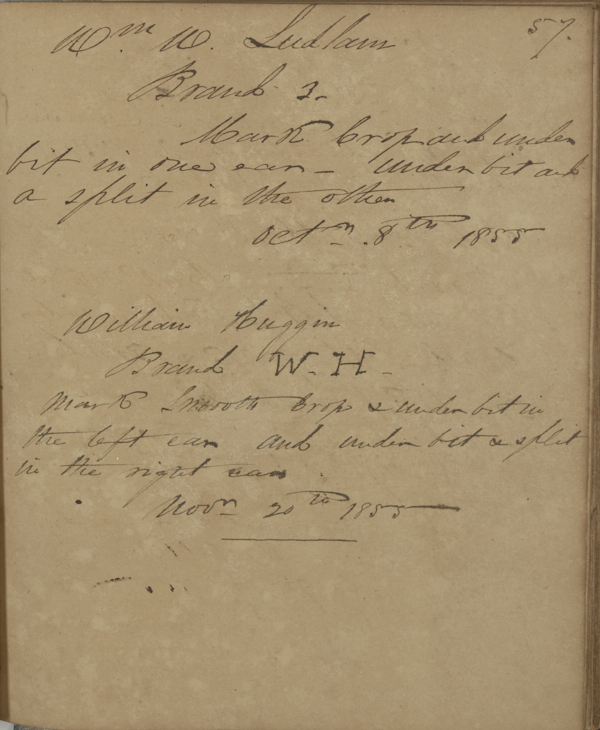 57.
Wm W. Ludlam
Brand 3-
Mark Crop and under
bit in one ear - underbit and
a split in the other
Octr. 8th 1855
William Huggin
Brand W. H-
Mark Smooth Crop & underbit in
the left ear and underbit & split
in the right ear
Novr 20th 1855